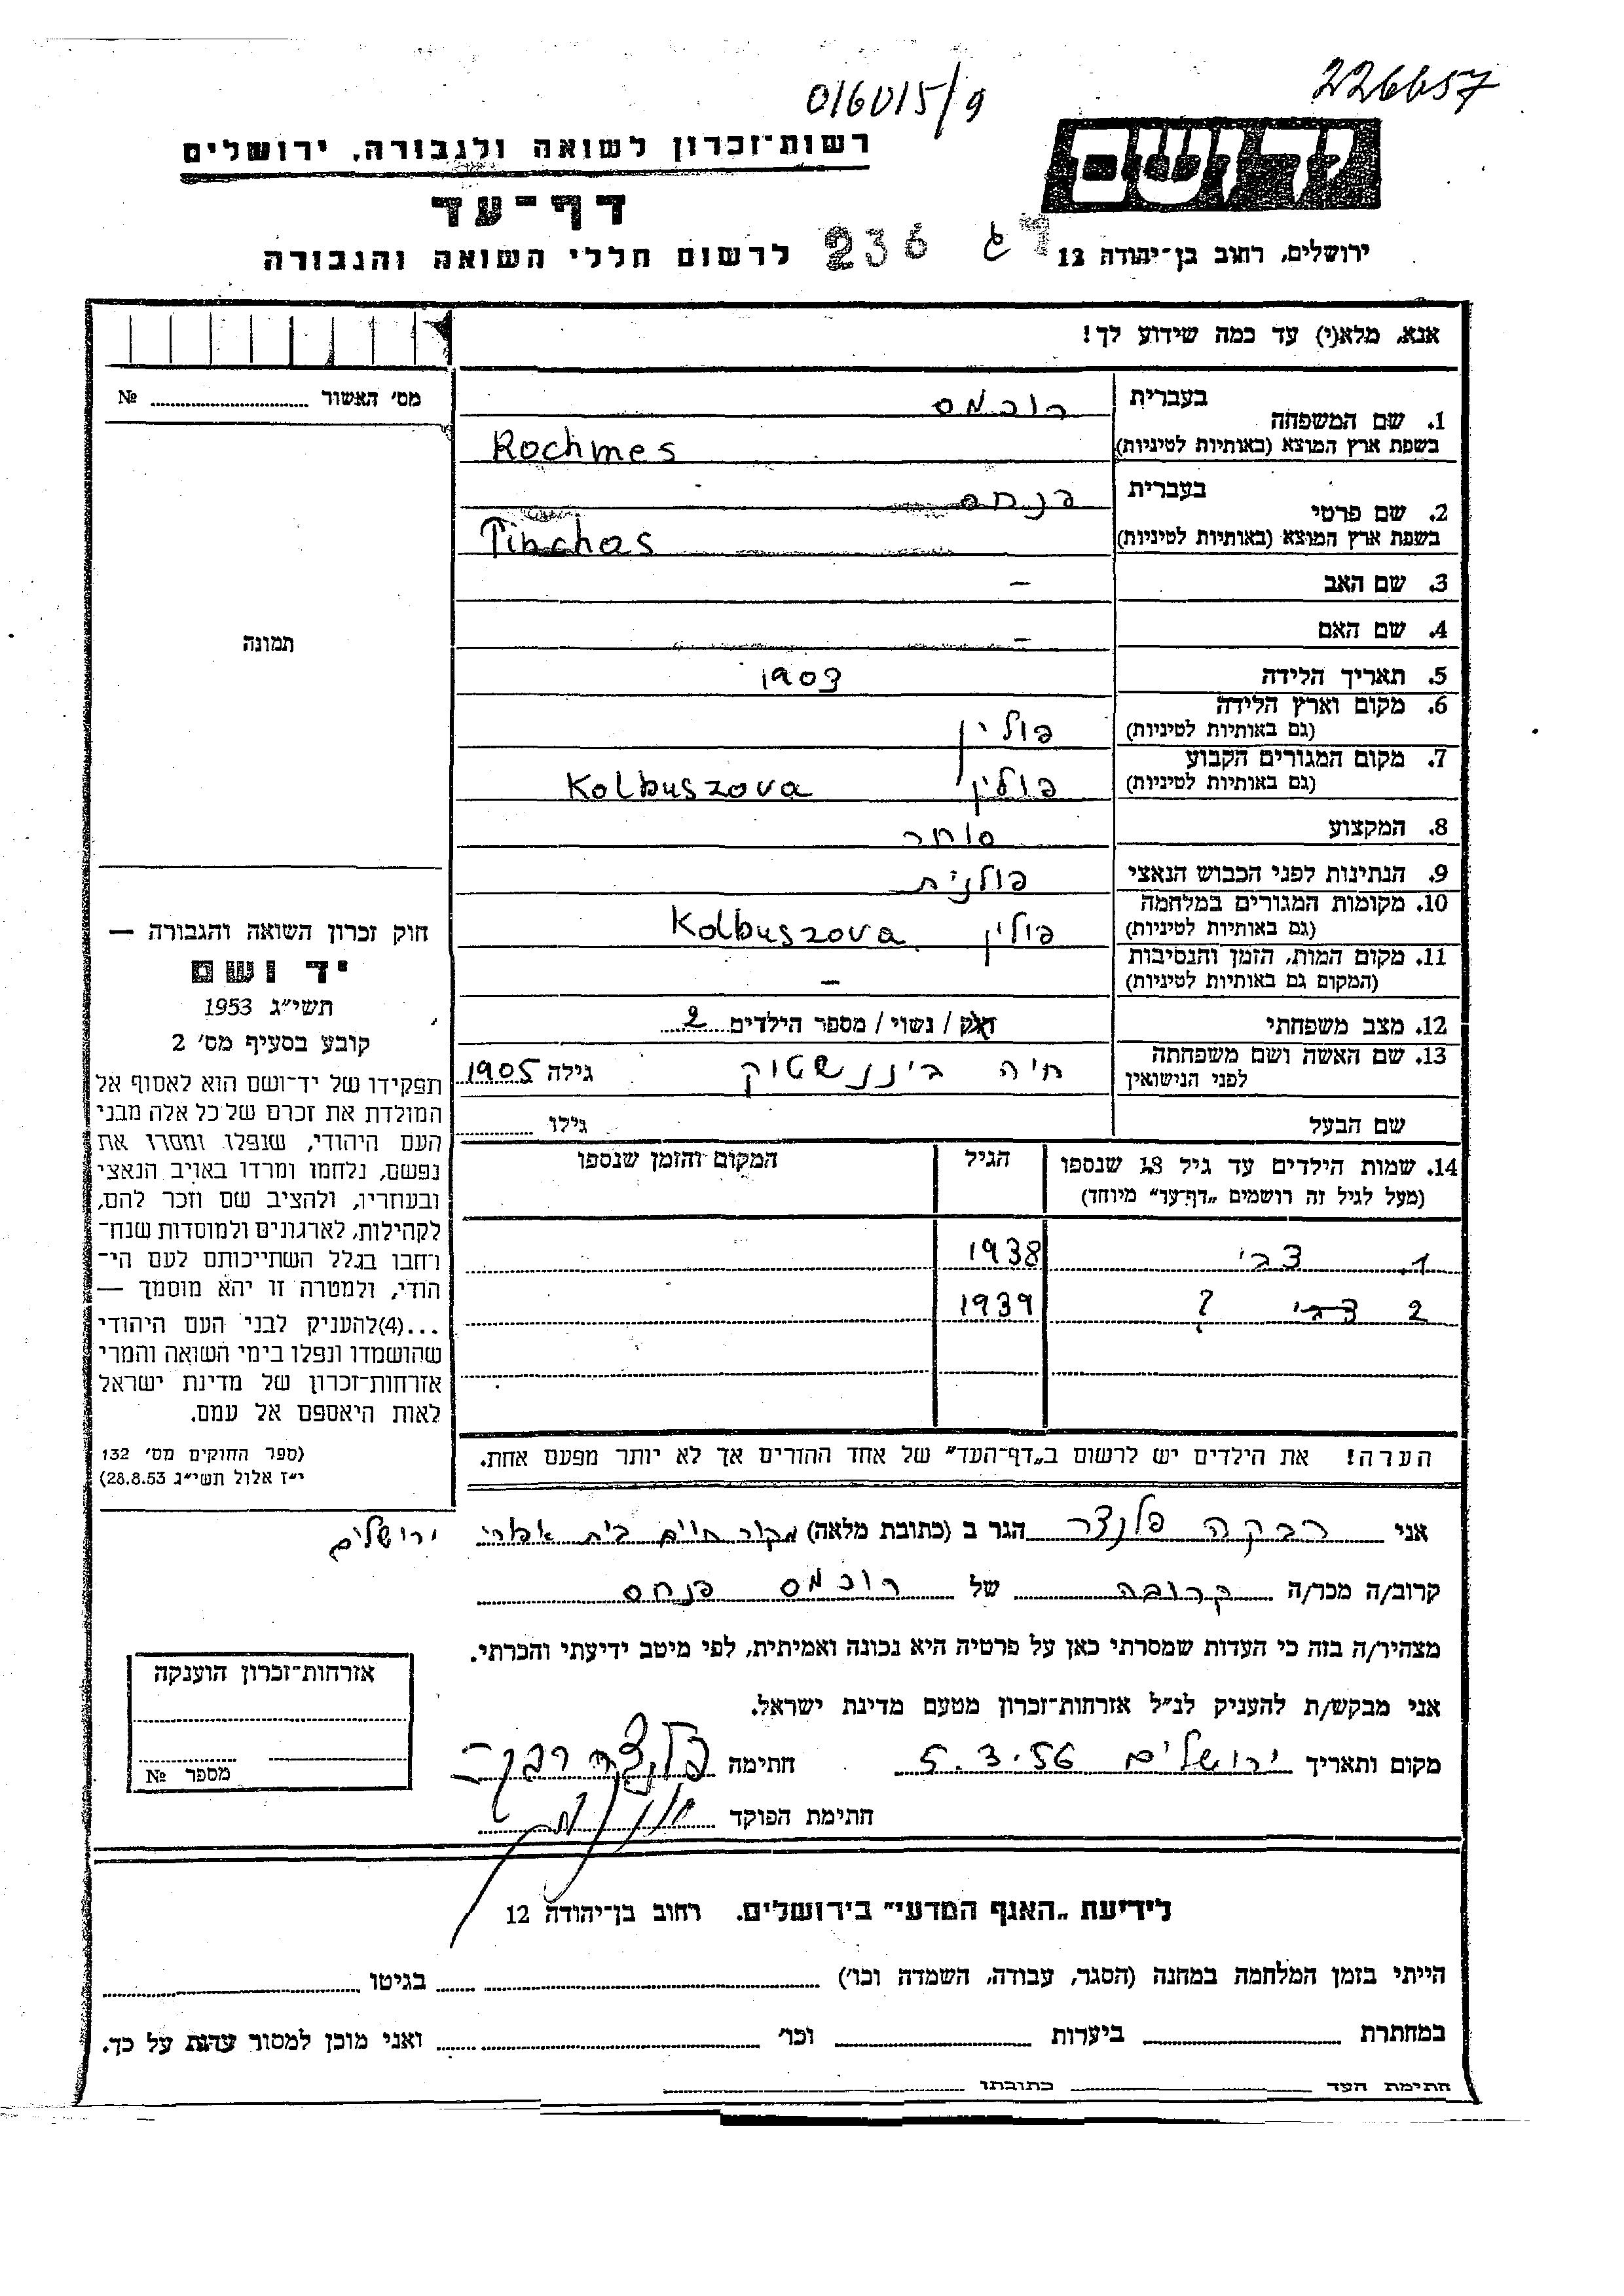 226657
016015/9
יד ושם
רשות־זכרון לשואה ולגבורה, ירושלים
דף־עד
לרשום חללי השואה והגבורה
236
ירושלים, רחוב בן־יהודה 12
אנא, מלא(י) עד כמה שידוע לך!
מס' האשור № 
1. שם המשפחה בעברית רוכמס
בשפת ארץ המוצא (באותיות לטיניות) Rochmes
2. שם פרטי בעברית פנחס
בשפת ארץ המוצא (באותיות לטיניות) Pinchas
3. שם האב –
4. שם האם –
תמונה
5. תאריך הלידה 1903
6. מקום וארץ הלידה פולין
(גם באותיות לטיניות)
7. מקום המגורים הקבוע פולין Kolbuszova
(גם באותיות לטיניות)
8. המקצוע סוחר
9. הנתינות לפני הכבוש הנאצי פולנית
10. מקומות המגורים במלחמה פולין Kolbuszova
(גם באותיות לטיניות)
11. מקום המות, הזמן והנסיבות –
(המקום גם באותיות לטיניות)
12. מצב משפחתי רווק / נשוי / מספר הילדים 2
13. שם האשה ושם משפחתה חיה ביננשטוק גילה 1905
לפני הנישואין
שם הבעל גילו
14. שמות הילדים עד גיל 18 שנספו הגיל המקום והזמן שנספו
(מעל לגיל זה רושמים „דף־עד" מיוחד)
1. צבי 1938
2 צבי ? 1939
הערה! את הילדים יש לרשום ב„דף־העד" של אחד ההורים אך לא יותר מפעם אחת.
חוק זכרון השואה והגבורה —
יד ושם
תשי״ג 1953
קובע בסעיף מס' 2
תפקידו של יד־ושם הוא לאסוף אל
המולדת את זכרם של כל אלה מבני
העם היהודי, שנפלו ומסרו את
נפשם, נלחמו ומרדו באויב הנאצי
ובעוזריו, ולהציב שם וזכר להם,
לקהילות, לארגונים ולמוסדות שנח־
רחבו בגלל השתייכותם לעם הי־
הודי, ולמטרה זו יהא מוסמך —
...(4)להעניק לבני העם היהודי
שהושמדו ונפלו בימי השואה והמרי
אזרחות־זכרון של מדינת ישראל
לאות היאספם אל עמם.
(ספר החוקים מס' 132
י״ז אלול תשי״ג 28.8.53)
אני רבקה פלנצר הגר ב (כתובת מלאה) מקור חיים בית ירושלים
קרוב/ה מכר/ה קרובה של רוכמס פנחס
מצהיר/ה בזה כי העדות שמסרתי כאן על פרטיה היא נכונה ואמיתית, לפי מיטב ידיעתי והכרתי.
אני מבקש/ת להעניק לנ״ל אזרחות־זכרון מטעם מדינת ישראל.
מקום ותאריך ירושלים 5.3.56 חתימה פלנצר רבקה
חתימת הפוקד
אזרחות־זכרון הוענקה
מספר №
לידיעת „האגף המדעי" בירושלים. רחוב בן־יהודה 12
הייתי בזמן המלחמה במחנה (הסגר, עבודה, השמדה וכו') בגיטו
במחתרת ביערות וכו' ואני מוכן למסור עדות על כך.
חתימת העד כתובתו